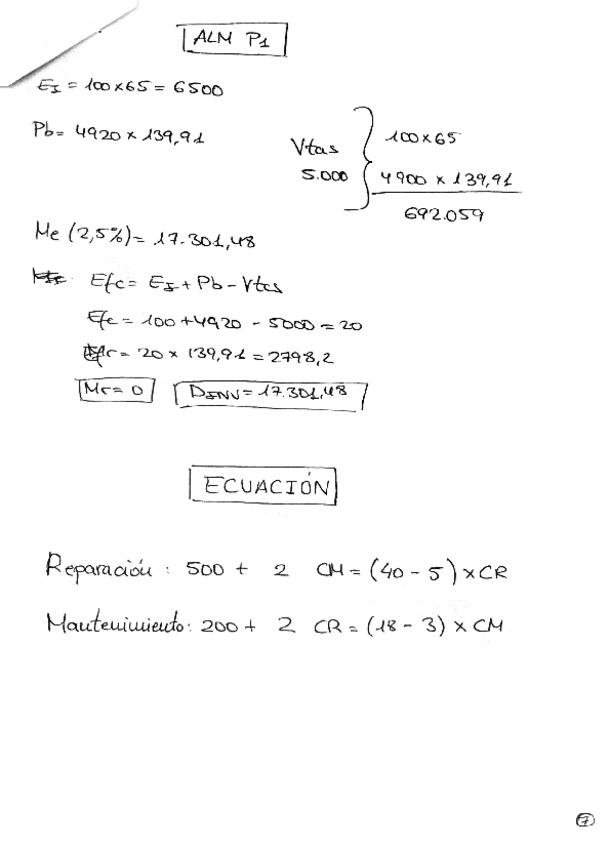 ALM P1
EI = 100x65 = 6500
Pb= 4920 x 139,91
Vtas 5.000 { 100x65
4900 x 139,91
692.059
Me (2,5%)= 17.301,48
Efc= EI + Pb - Vtas
Efc= 100+4920 - 5000 = 20
Efr= 20 x 139,91 = 2798,2
Mr= 0 DINV= 17.301,48
ECUACIÓN
Reparación : 500 + 2 CM = (40 - 5) x CR
Mantenimiento: 200 + 2 CR = (18 - 3) x CM
7